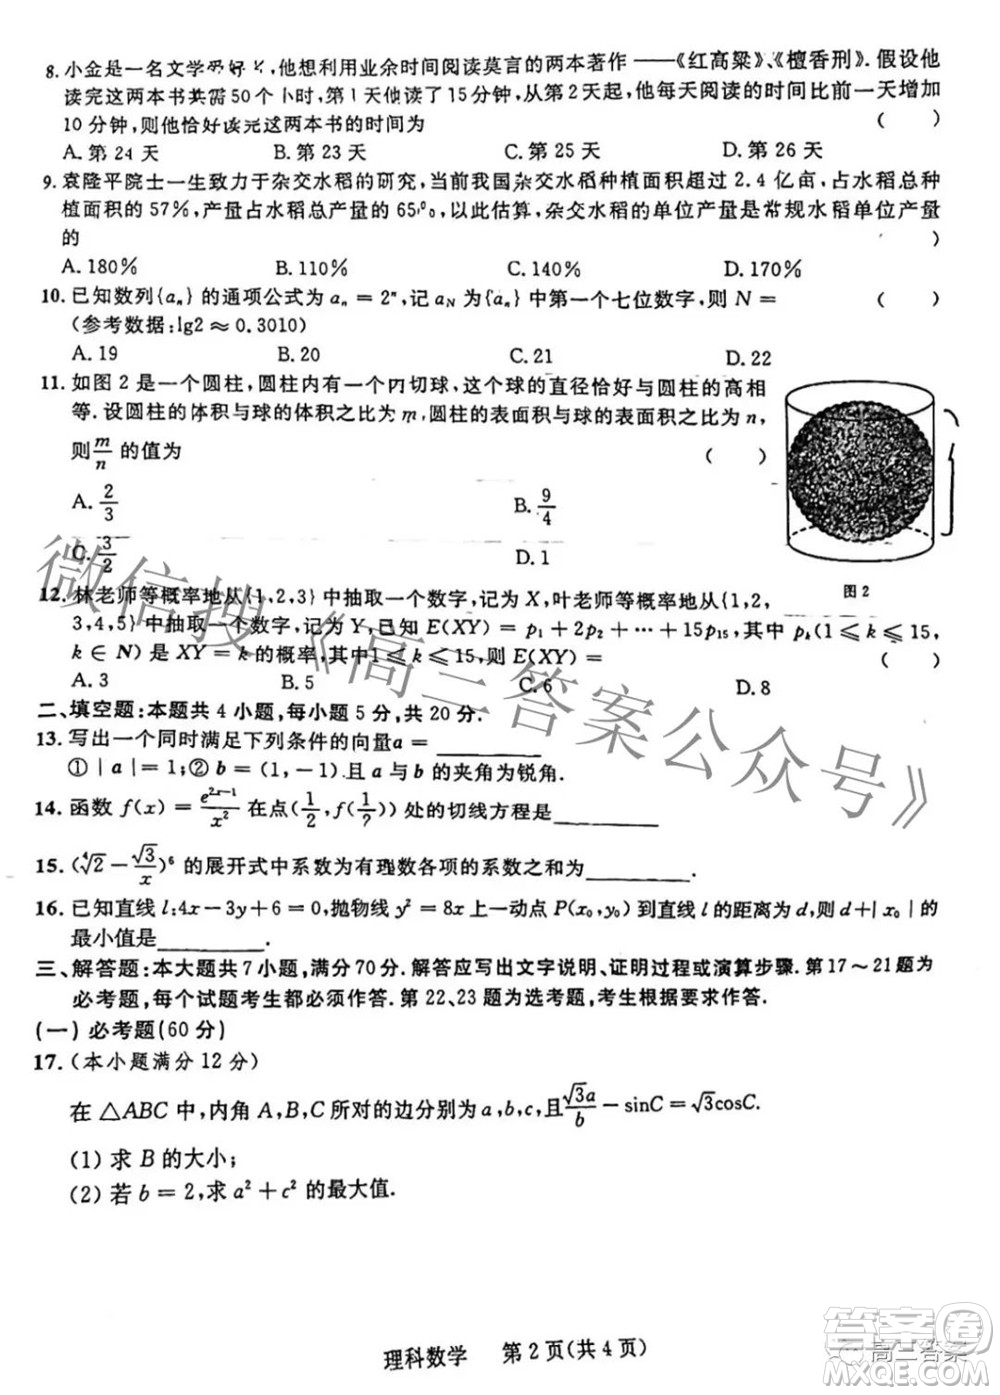 8. 小金是一名文学爱好者,他想利用业余时间阅读莫言的两本著作——《红高粱》、《檀香刑》. 假设他
读完这两本书共需50个小时,第1天他读了15分钟,从第2天起,他每天阅读的时间比前一天增加
10分钟,则他恰好读完这两本书的时间为 ( )
A. 第 24 天 B. 第 23 天 C. 第 25 天 D. 第 26 天
9. 袁隆平院士一生致力于杂交水稻的研究,当前我国杂交水稻种植面积超过 2.4 亿亩,占水稻总种
植面积的 57%,产量占水稻总产量的 65%,以此估算,杂交水稻的单位产量是常规水稻单位产量
的 ( )
A. 180% B. 110% C. 140% D. 170%
10. 已知数列{aₙ}的通项公式为 aₙ = 2ⁿ,记 a_N 为{aₙ}中第一个七位数字,则 N = ( )
(参考数据:lg2 ≈ 0.3010)
A. 19 B. 20 C. 21 D. 22
11. 如图 2 是一个圆柱,圆柱内有一个内切球,这个球的直径恰好与圆柱的高相
等. 设圆柱的体积与球的体积之比为 m,圆柱的表面积与球的表面积之比为 n,
则 m/n 的值为 ( )
A. 2/3 B. 9/4
C. 3/2 D. 1
图 2
12. 林老师等概率地从{1,2,3}中抽取一个数字,记为 X,叶老师等概率地从{1,2,
3,4,5}中抽取一个数字,记为 Y,已知 E(XY) = p₁ + 2p₂ + ⋯ + 15p₁₅,其中 pₖ(1 ⩽ k ⩽ 15,
k ∈ N)是 XY = k 的概率,其中1 ⩽ k ⩽ 15,则 E(XY) = ( )
A. 3 B. 5 C. 6 D. 8
二、填空题:本题共 4 小题,每小题 5 分,共 20 分.
13. 写出一个同时满足下列条件的向量a = ________
①|a|=1;②b = (1,-1).且 a 与 b 的夹角为锐角.
14. 函数 f(x) = e^(2x-1)/x² 在点(1/2,f(1/2))处的切线方程是________
15. (⁴√2 - √3/x)⁶ 的展开式中系数为有理数各项的系数之和为________.
16. 已知直线 l:4x-3y+6=0,抛物线 y²=8x 上一动点 P(x₀,y₀) 到直线 l 的距离为 d,则 d+|x₀|的
最小值是________.
三、解答题:本大题共 7 小题,满分 70 分. 解答应写出文字说明、证明过程或演算步骤. 第 17~21 题为
必考题,每个试题考生都必须作答. 第 22、23 题为选考题,考生根据要求作答.
(一) 必考题(60 分)
17. (本小题满分 12 分)
在 △ABC 中,内角 A,B,C 所对的边分别为 a,b,c,且 √3a/b - sinC = √3cosC.
(1) 求 B 的大小;
(2) 若 b = 2,求 a² + c² 的最大值.
理科数学 第 2 页(共 4 页)
微信搜《高三答案公众号》
答案圈
高三答案
MXQE.COM